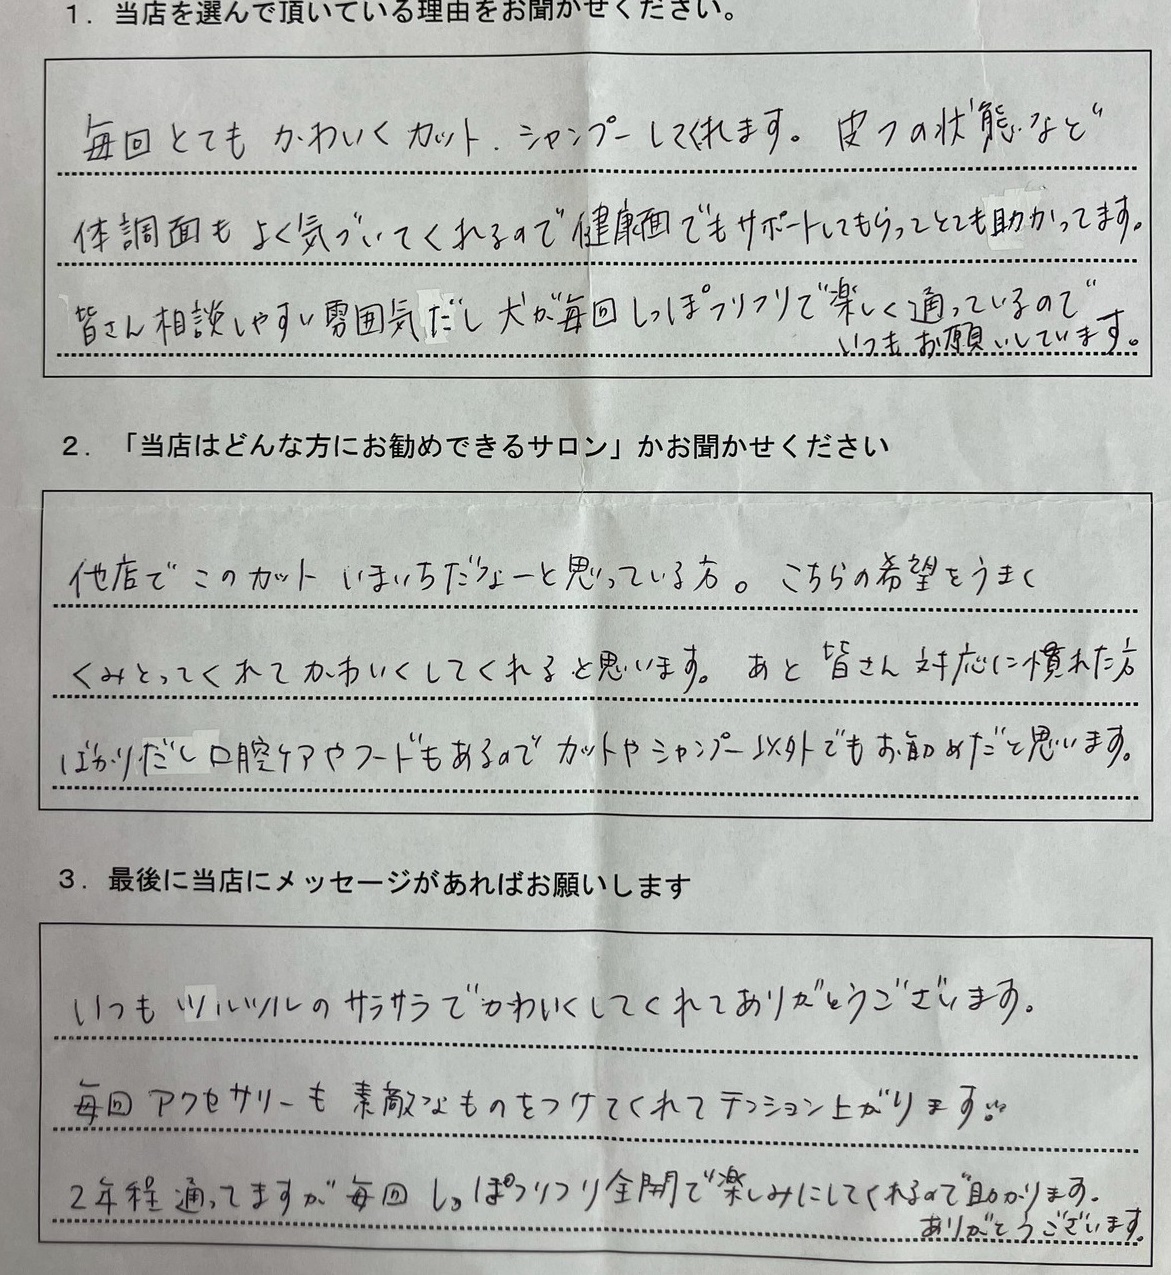 1．当店を選んで頂いている理由をお聞かせください。
毎回とてもかわいくカット、シャンプーしてくれます。皮フの状態など
体調面もよく気づいてくれるので健康面でもサポートしてもらってとても助かってます。
皆さん相談しやすい雰囲気だし犬が毎回しっぽフリフリで楽しく通っているので
いつもお願いしています。
2．「当店はどんな方にお勧めできるサロン」かお聞かせください
他店でこのカットいまいちだなーと思っている方。こちらの希望をうまく
くみとってくれてかわいくしてくれると思います。あと皆さん対応に慣れた方
ばかりだし口腔ケアやフードもあるのでカットやシャンプー以外でもお勧めだと思います。
3．最後に当店にメッセージがあればお願いします
いつもツルツルのサラサラでかわいくしてくれてありがとうございます。
毎回アクセサリーも素敵なものをつけてくれてテンション上がります
2年程通ってますが毎回しっぽフリフリ全開で楽しみにしてくれるので助かります。
ありがとうございます。